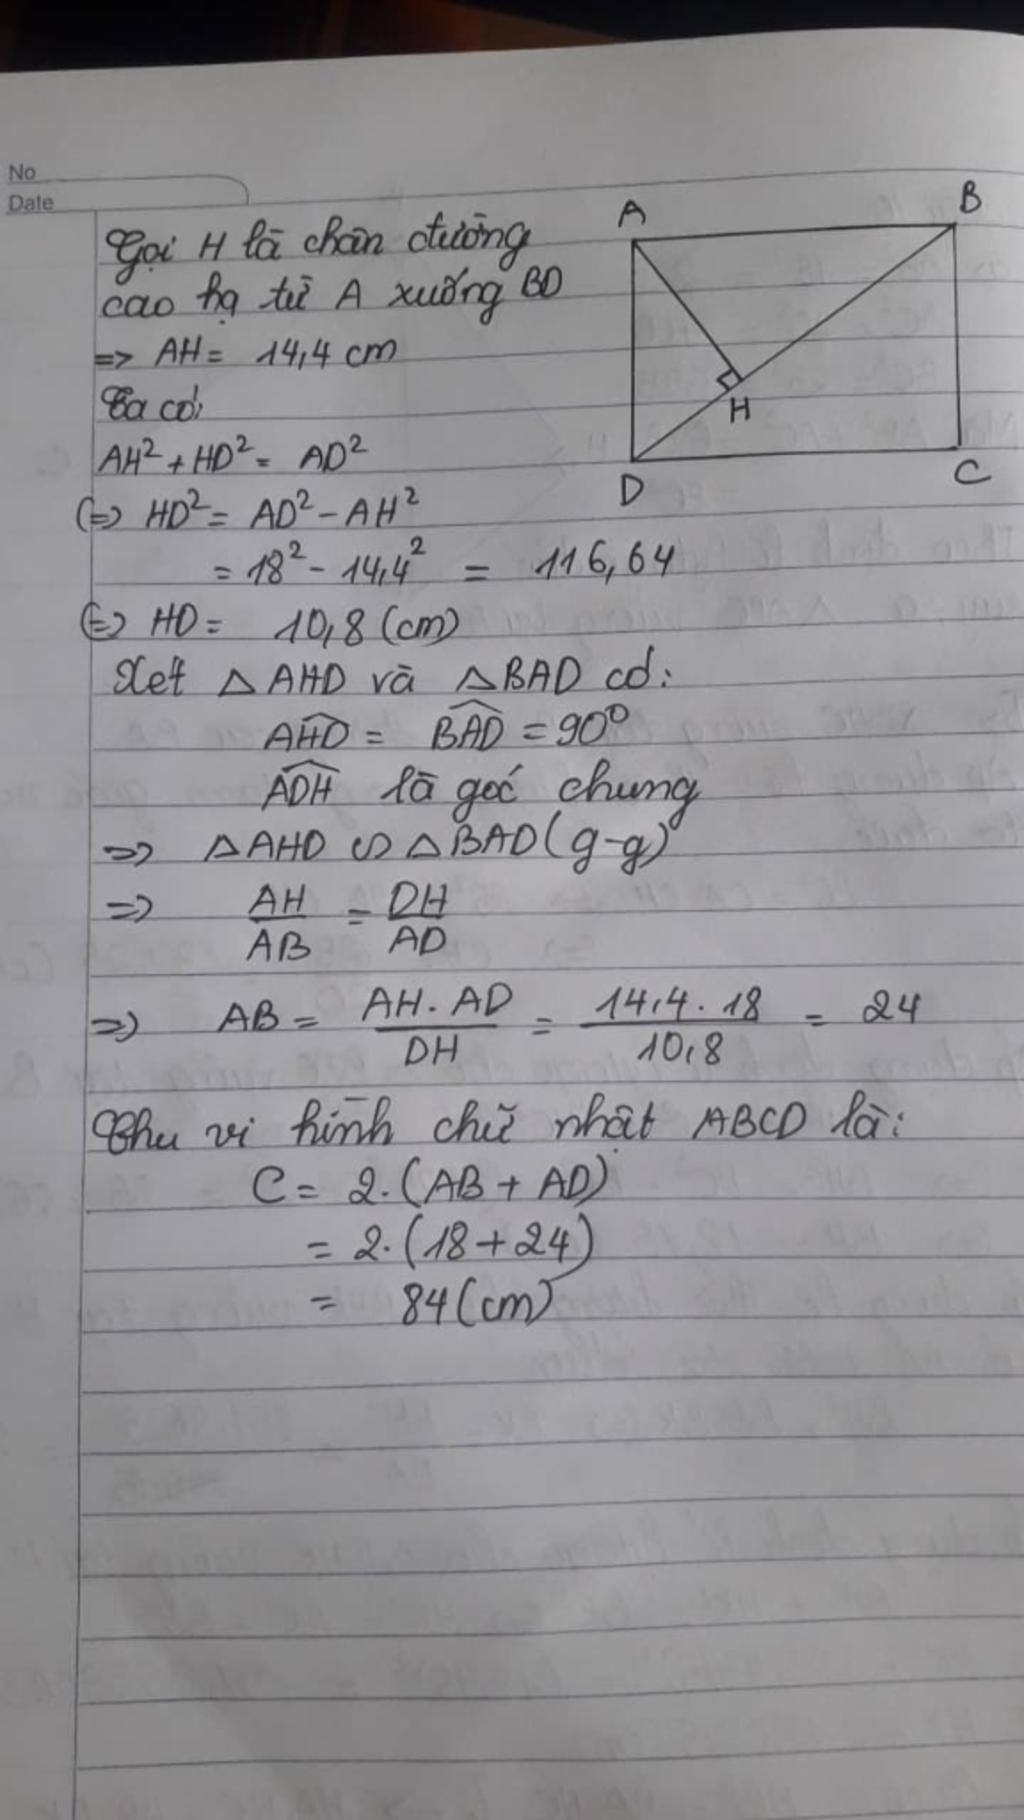 No
Date
Gọi H là chân đường
cao hạ từ A xuống BD
=> AH = 14,4 cm
Ta có:
AH² + HD² = AD²
(=) HD² = AD² - AH²
= 18² - 14,4² = 116,64
(=) HD = 10,8 (cm)
Xét △AHD và △BAD có:
AHD = BAD = 90°
ADH là góc chung
=> △AHD ∽ △BAD (g-g)
=> AH/AB = DH/AD
=> AB = AH.AD/DH = 14,4.18/10,8 = 24
Chu vi hình chữ nhật ABCD là:
C = 2.(AB + AD)
= 2.(18+24)
= 84 (cm)
A
B
H
D
C